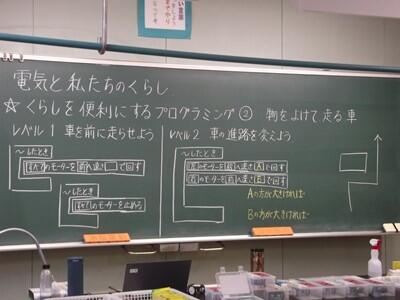 電気と私たちのくらし
☆くらしを便利にするプログラミング② 物をよけて走る車
レベル1 車を前に走らせよう
～したとき
すべてのモーターを前へ速さ□で回す
～したとき
すべてのモーターを止める
レベル2 車の進路を変えよう
～したとき
のモーターを前へ速さAで回す
のモーターを前へ速さBで回す
Aの方が大きければ
Bの方が大きければ